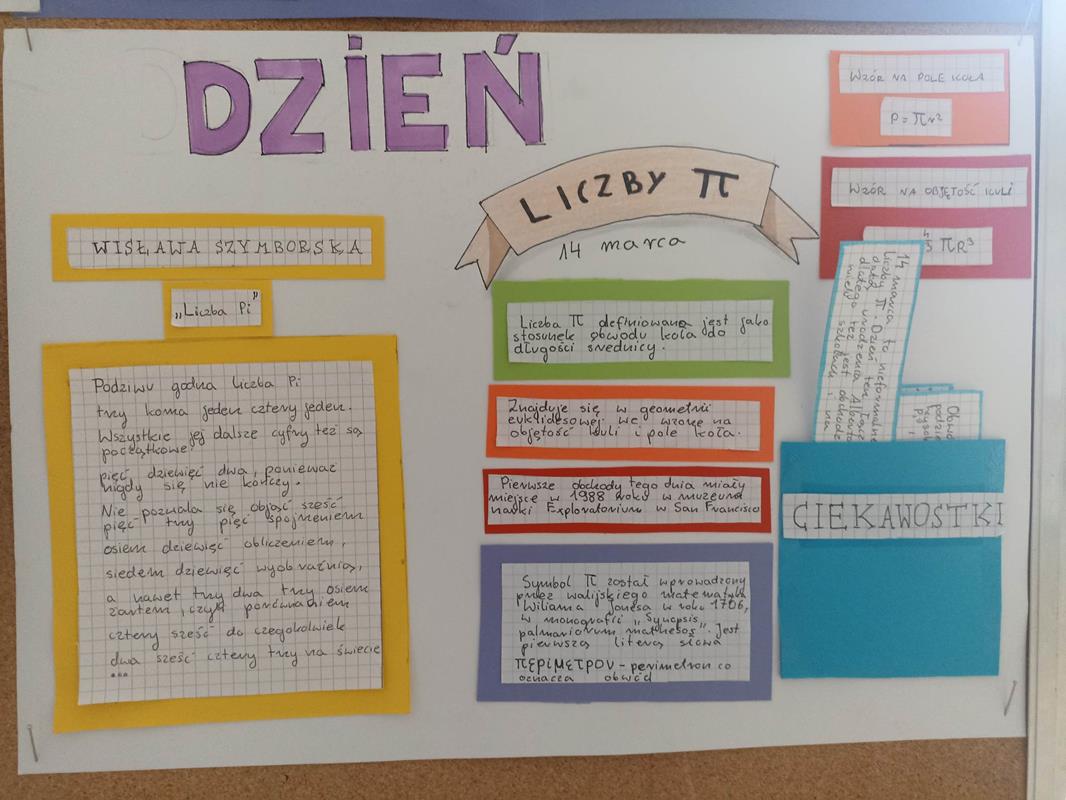 DZIEŃ
LICZBY π
14 marca
WISŁAWA SZYMBORSKA
„Liczba Pi"
Podziwu godna liczba Pi
trzy koma jeden cztery jeden.
Wszystkie jej dalsze cyfry też są
początkowe.
pięć dziewięć dwa, ponieważ
nigdy się nie kończy.
Nie pozwala się objąć sześć
pięć trzy pięć spojrzeniem
osiem dziewięć obliczeniem,
siedem dziewięć wyobraźnią,
a nawet trzy dwa trzy osiem
żartem, czyli porównaniem
cztery sześć do czegokolwiek
dwa sześć cztery trzy na świecie
...
Liczba π definiowana jest jako
stosunek obwodu koła do
długości średnicy.
Znajduje się w geometrii
euklidesowej we wzorze na
objętość kuli i pole koła.
Pierwsze obchody tego dnia miały
miejsce w 1988 roku w muzeum
nauki Exploratorium w San Francisco
Symbol π został wprowadzony
przez walijskiego matematyka
Wiliama Jonesa w roku 1706,
w monografii „Synopsis
palmariorum matheseos". Jest
pierwszą literą słowa
ΠΕΡΙΜΕΤΡΟΝ - perimetron co
oznacza obwód
WZÓR NA POLE KOŁA
P = πr²
WZÓR NA OBJĘTOŚĆ KULI
4/3 πR³
14 marca to nieformalne
Liczby π. Dzień ten łączy
datą urodzenia Alberta
dlatego też jest obchodz
wielu szkołach i na
Obwó
podzie
Pi
CIEKAWOSTKI